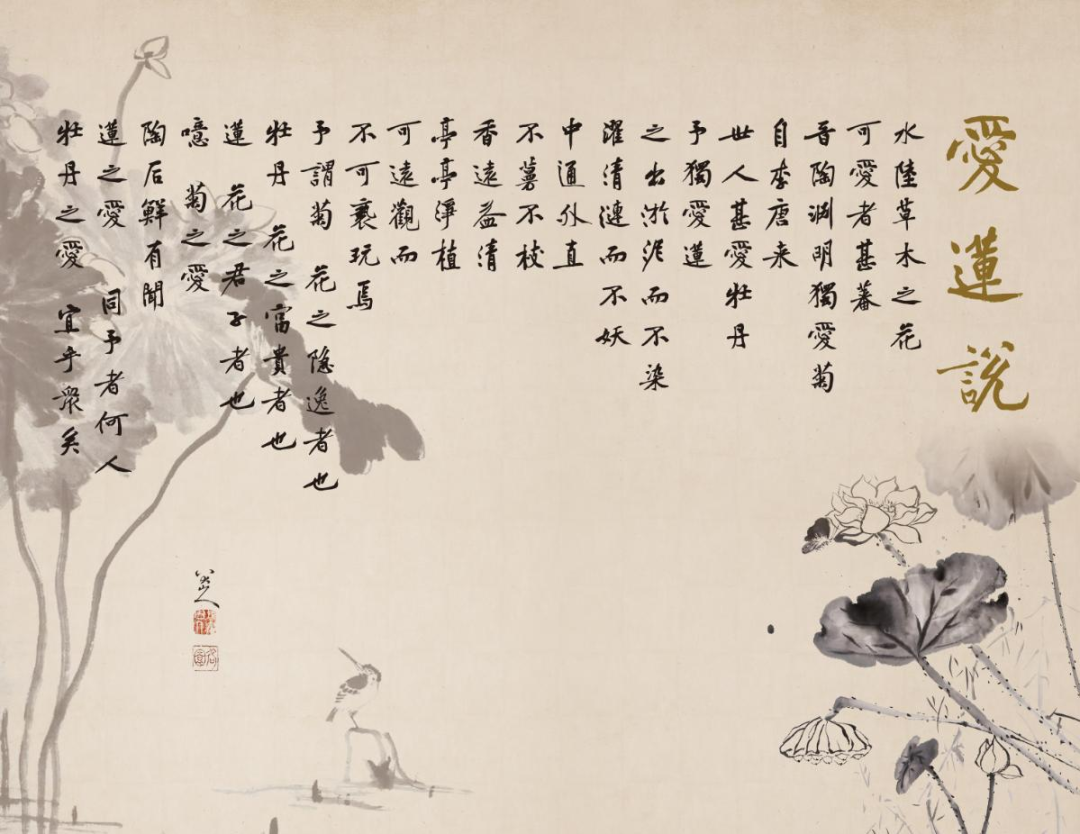 愛蓮說
水陸草木之花
可愛者甚蕃
晉陶渊明獨愛菊
自李唐来
世人甚愛牡丹
予獨愛蓮
之出淤泥而不染
濯清漣而不妖
中通外直
不蔓不枝
香遠益清
亭亭淨植
可遠觀而
不可褻玩焉
予謂菊 花之隐逸者也
牡丹 花之富貴者也
蓮 花之君子者也
噫 菊之愛
陶后鮮有聞
蓮之愛 同予者何人
牡丹之愛 宜乎眾矣
八大山人